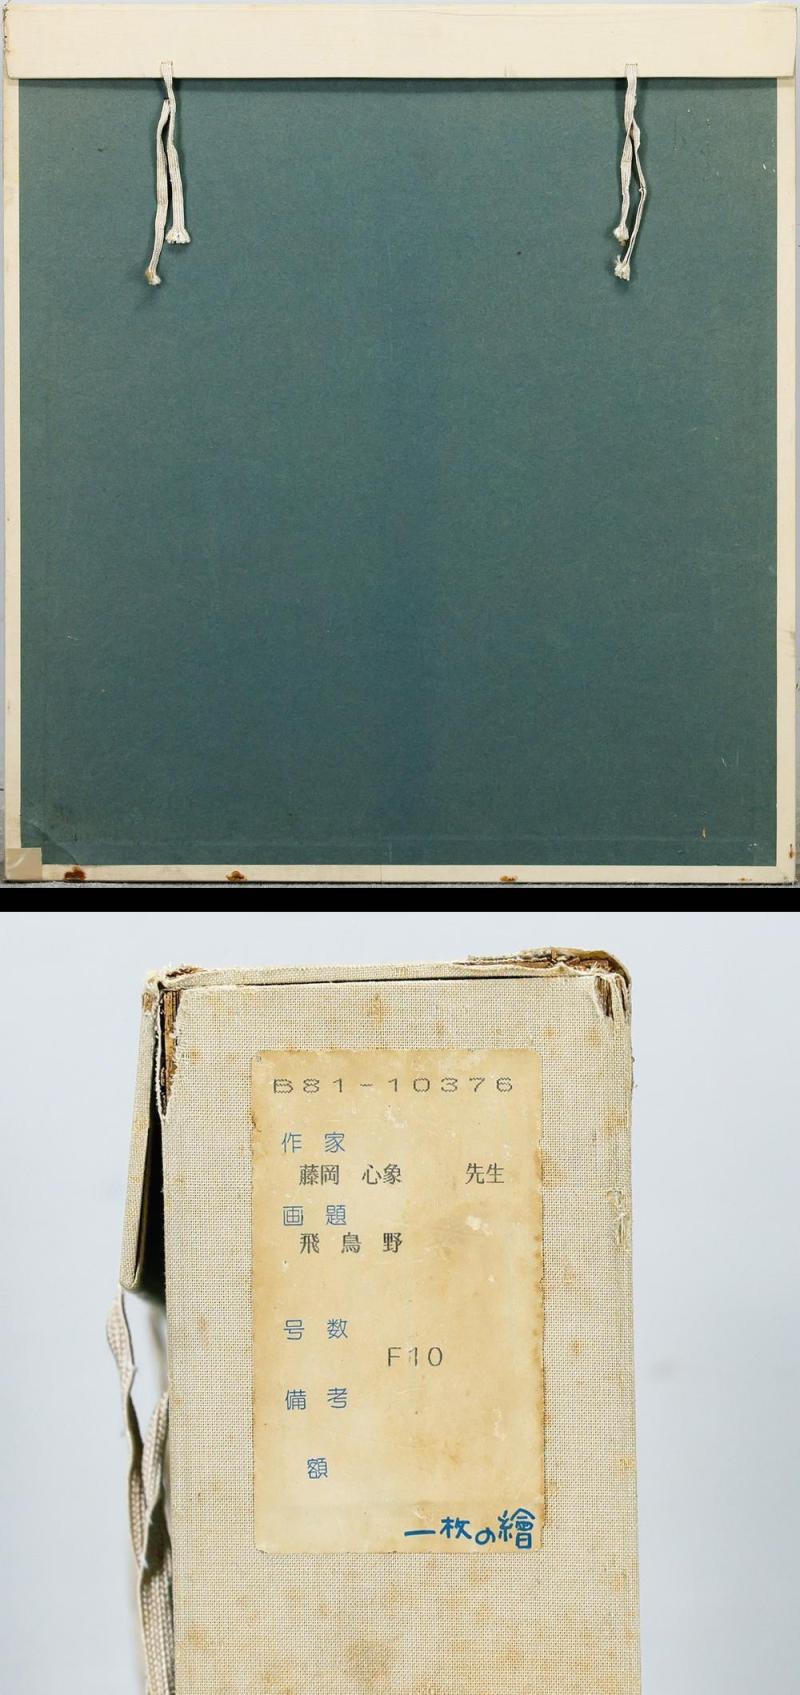 B81-10376
作家
藤岡 心象 先生
画題
飛鳥野
号数
F10
備考
額
一枚の繪